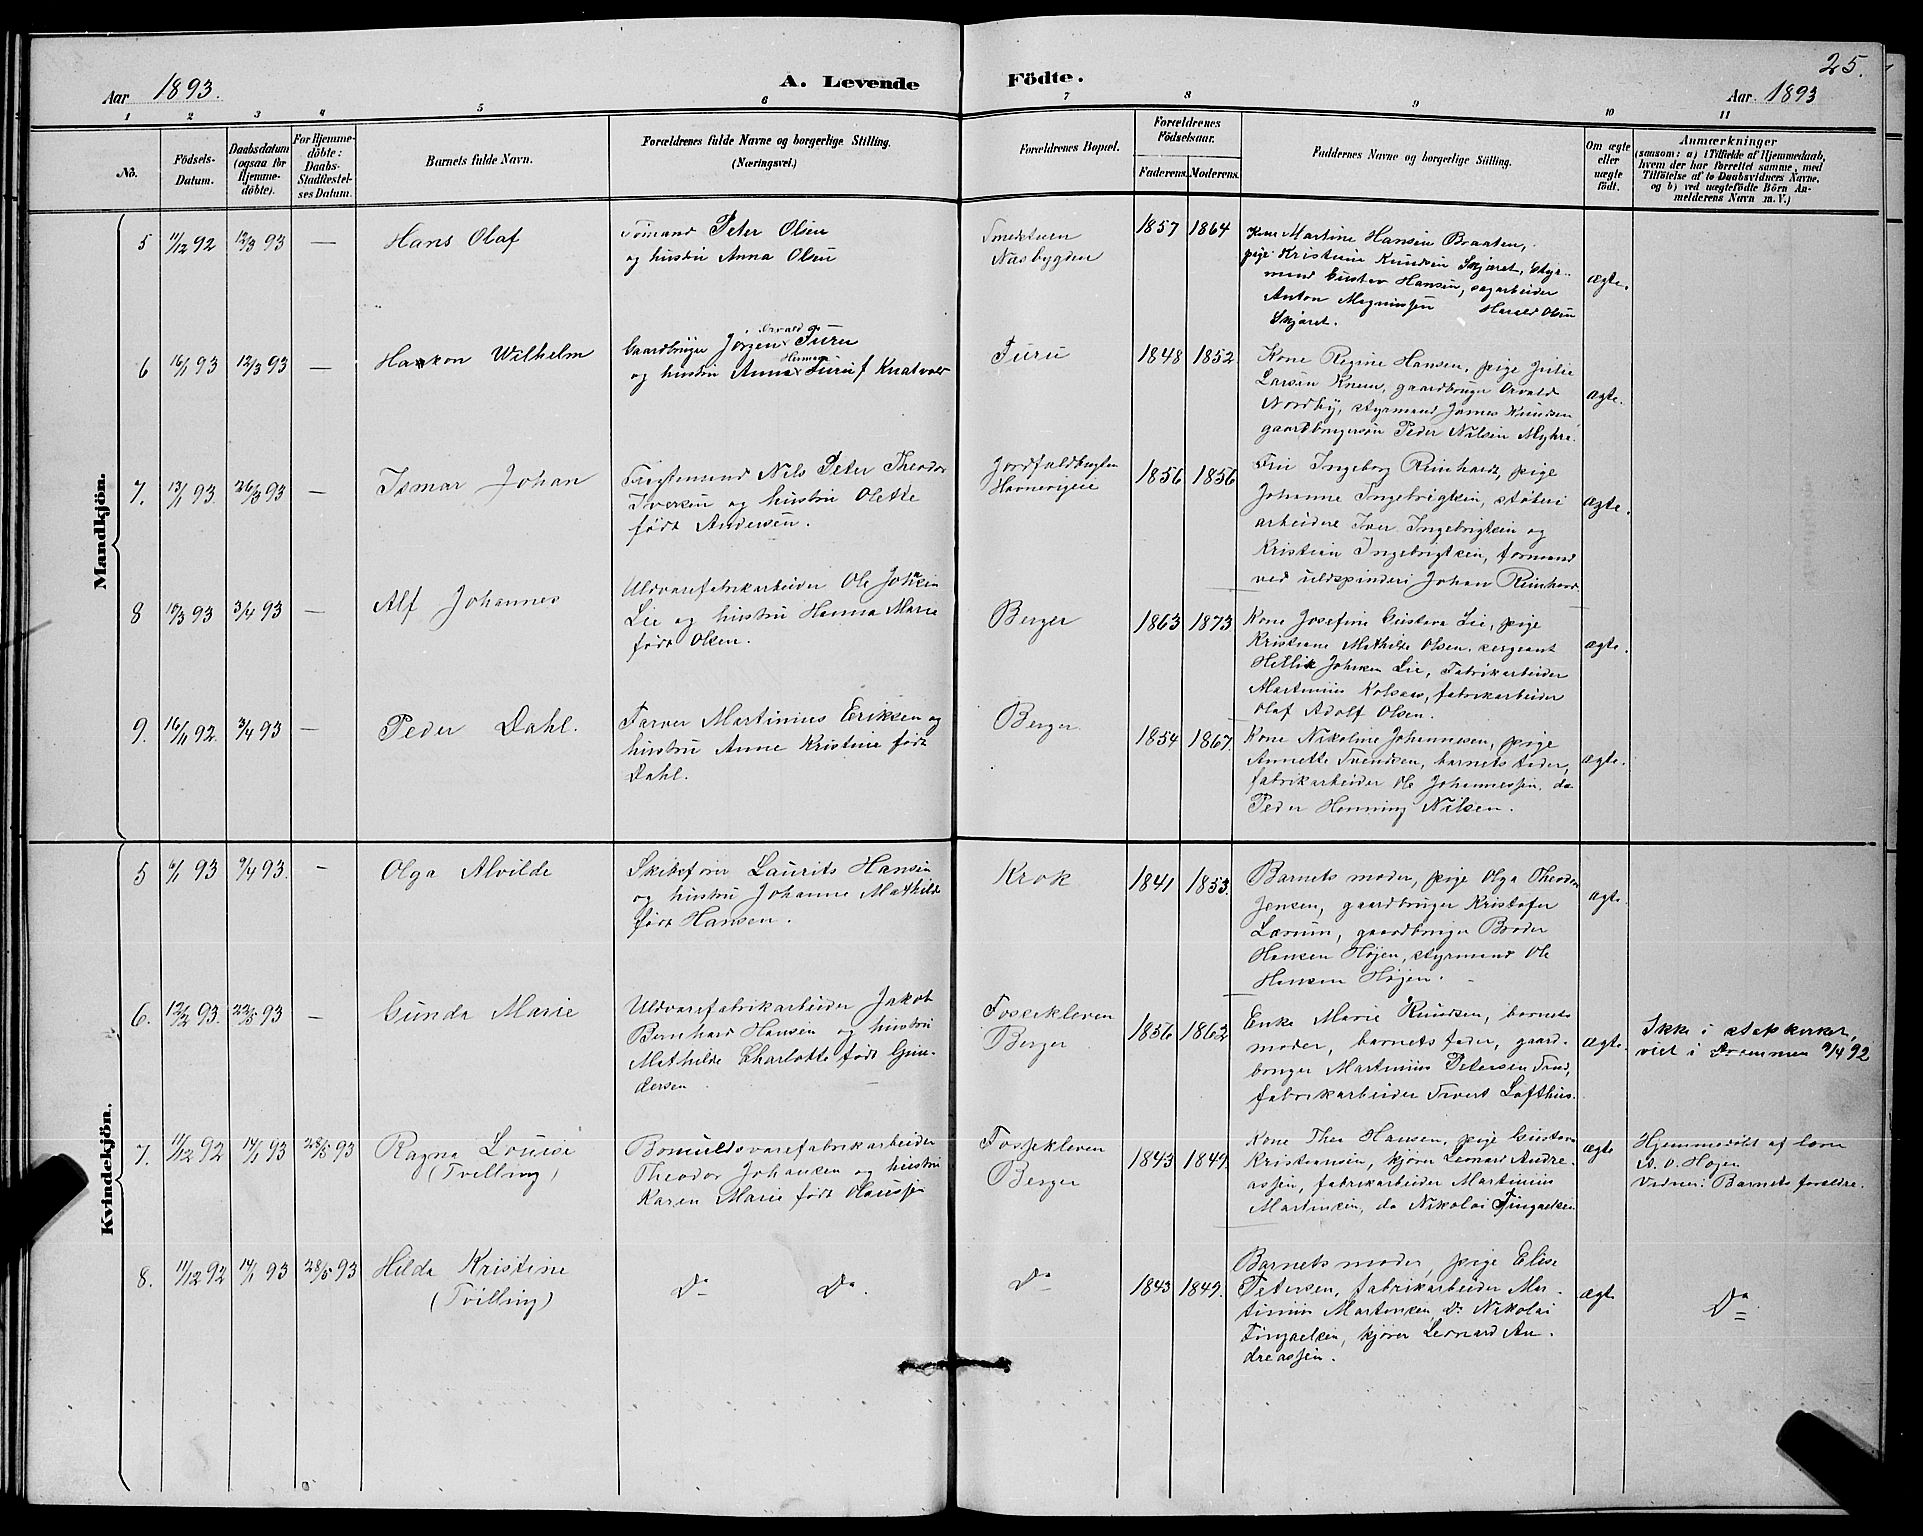 25.
Aar 1893.
A. Levende Födte.
Aar 1893
1 2 3 4 5 6 7 8 9 10 11
No.
Födsels-
Datum.
Daabsdatum
(ogsaa för
Hjemme-
döbte).
For Hjemme-
döbte:
Daabs-
Stadfæstel-
ses Datum.
Barnets fulde Navn.
Forældrenes fulde Navne og borgerlige Stilling.
(Næringsvei.)
Forældrenes Bopæl.
Forældrenes
Födselsaar.
Faderens. Moderens.
Faddernes Navne og borgerlige Stilling.
Om ægte
eller
uægte
födt.
Anmærkninger
(saasom: a) i Tilfælde af Hjemmedaab,
hvem der har forrettet samme, med
Tilföielse af to Daabsvidners Navne,
og b) ved uægtefödte Börn An-
melderens Navn m. V.)
Mandkjön.
5 11/12 92 12/3 93 —
Hans Olaf
Sömand Peter Olsen
og hustru Anna Olsen
Næsbygden
1857 1864
Kone Martine Hansen Braaten,
pige Kristine Knudsen Skjæret, Styr-
mand Gustav Hansen, sagarbeider
Anton Magnussen Harald Olsen
Skjæret.
ægte.
6 16/1 93 12/3 93 —
Haakon Wilhelm
Gaardbruger Jörgen Furu
og hustru Anne Furu f. Knatvold
Furu
1848 1852
Kone Regine Hansen, pige Julie
Larsen Knem, gaardbruger Orvald
Nordby, styrmand James Knudsen
gaardbrugersön Peder Nilsen Myhre.
ægte.
7. 13/1 93. 26/3 93 —
Ismar Johan
Fragtemand Nils Peter Theodor
Iversen og hustru Olette
född Andersen.
Jordfaldbugten
1856 1856
Fru Ingeborg Reinhardt, pige
Johanne Ingebrigtsen, støberi
arbeidere Iver Ingebrigtsen og
Kristian Ingebrigtsen, formand
ved uldspinderi Johan Reinhard
ægte.
8 3/4 93 —
Alf Johannes
Uldvarefabrikarbeider Ole Johnsen
Lie og hustru Hanna Marie
född Olsen.
Berger
1863 1873
Kone Josefine Gustava Lie, pige
Kristiane Mathilde Olsen, sergeant
Johnsen Lie, Fabrikarbeider
Martinius Kolsaas, fabrikarbeider
Olaf Adolf Olsen.
ægte.
9. 16/11 92. 3/4 93 —
Peder Dahl.
Farver Martinius Eriksen og
hustru Anne Kristine född
Dahl.
Berger
1854 1867.
Kone Nikoline Johannesen, pige
Annette Svendsen, barnets fader,
fabrikarbeider Ole Johannessen, do
Peder Henning Nilsen.
ægte.
Kvindekjön.
5 6/1 93 9/4 93. —
Olga Alvilde
Skibsförer Laurits Hansen
og hustru Johanne Mathilde
född Hansen.
Krok
1841 1853.
Barnets moder, pige Olga Theodora
Jensen, gaardbruger Kristofer
gaardbruger Broder
Hansen Höjen, styrmand Ole
Hansen Höjen.
ægte.
6. 12/2 93. 22/5 93 —
Gunda Marie
Uldvarefabrikarbeider Jakob
Bernhard Hansen og hustru
Mathilde Charlotte född Gun-
dersen
Fossekleven
Berger
1856 1862
Enke Marie Knudsen, barnets
moder, barnets fader, gaard-
bruger Martinius Petersen
fabrikarbeider Sivert Lofthus.
ægte.
Ikke i statskirken,
viet i Drammen 9/4 92
7. 11/12 92 14/1 93 28/5 93
Ragna Louise
(Tvilling)
Bomuldsvarefabrikarbeider
Theodor Johansen og hustru
Karen Marie född Olaussen
Fossekleven
Berger
1843 1849.
Kone Thea Hansen, pige Gustava
Kristiansen, kjörer Leonard Andre-
assen, fabrikarbeider Martinius
Martinsen, do Nikolai Tingvelsen
ægte
Hjemmedöbt af lærer
Höjen
Vidner: Barnets forældre.
8. 11/12 92 14/1 93 28/5 93
Hilda Kristine
(Tvilling)
Do Do.
Do
1843 1849.
Barnets moder, pige Elise
Petersen, fabrikarbeider Mar-
tinius Martinsen, Do Nikolai
Tingvelsen, kjörer Leonard An-
dreassen.
ægte
Do.